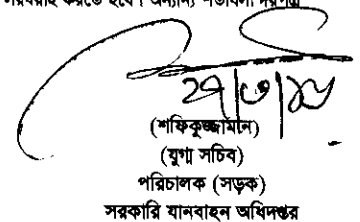 সরবরাহ করতে হবে। অন্যান্য শর্তাবলী দরপত্রে
২৭/৩/১৮
(শফিকুজ্জামান)
(যুগ্ম সচিব)
পরিচালক (সড়ক)
সরকারি যানবাহন অধিদপ্তর